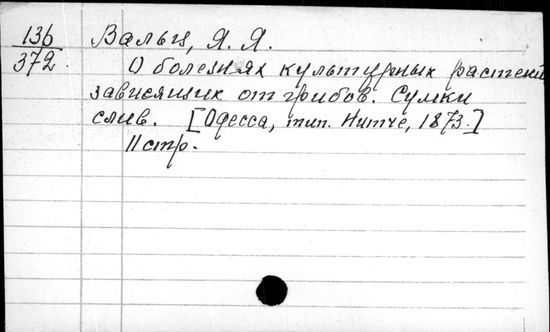 136
372.
Вальц, Я. Я.
О болезнях культурных растений
зависящих от грибов. Сумки
слив. [Одесса, тип. Нитче, 1873.]
11 стр.